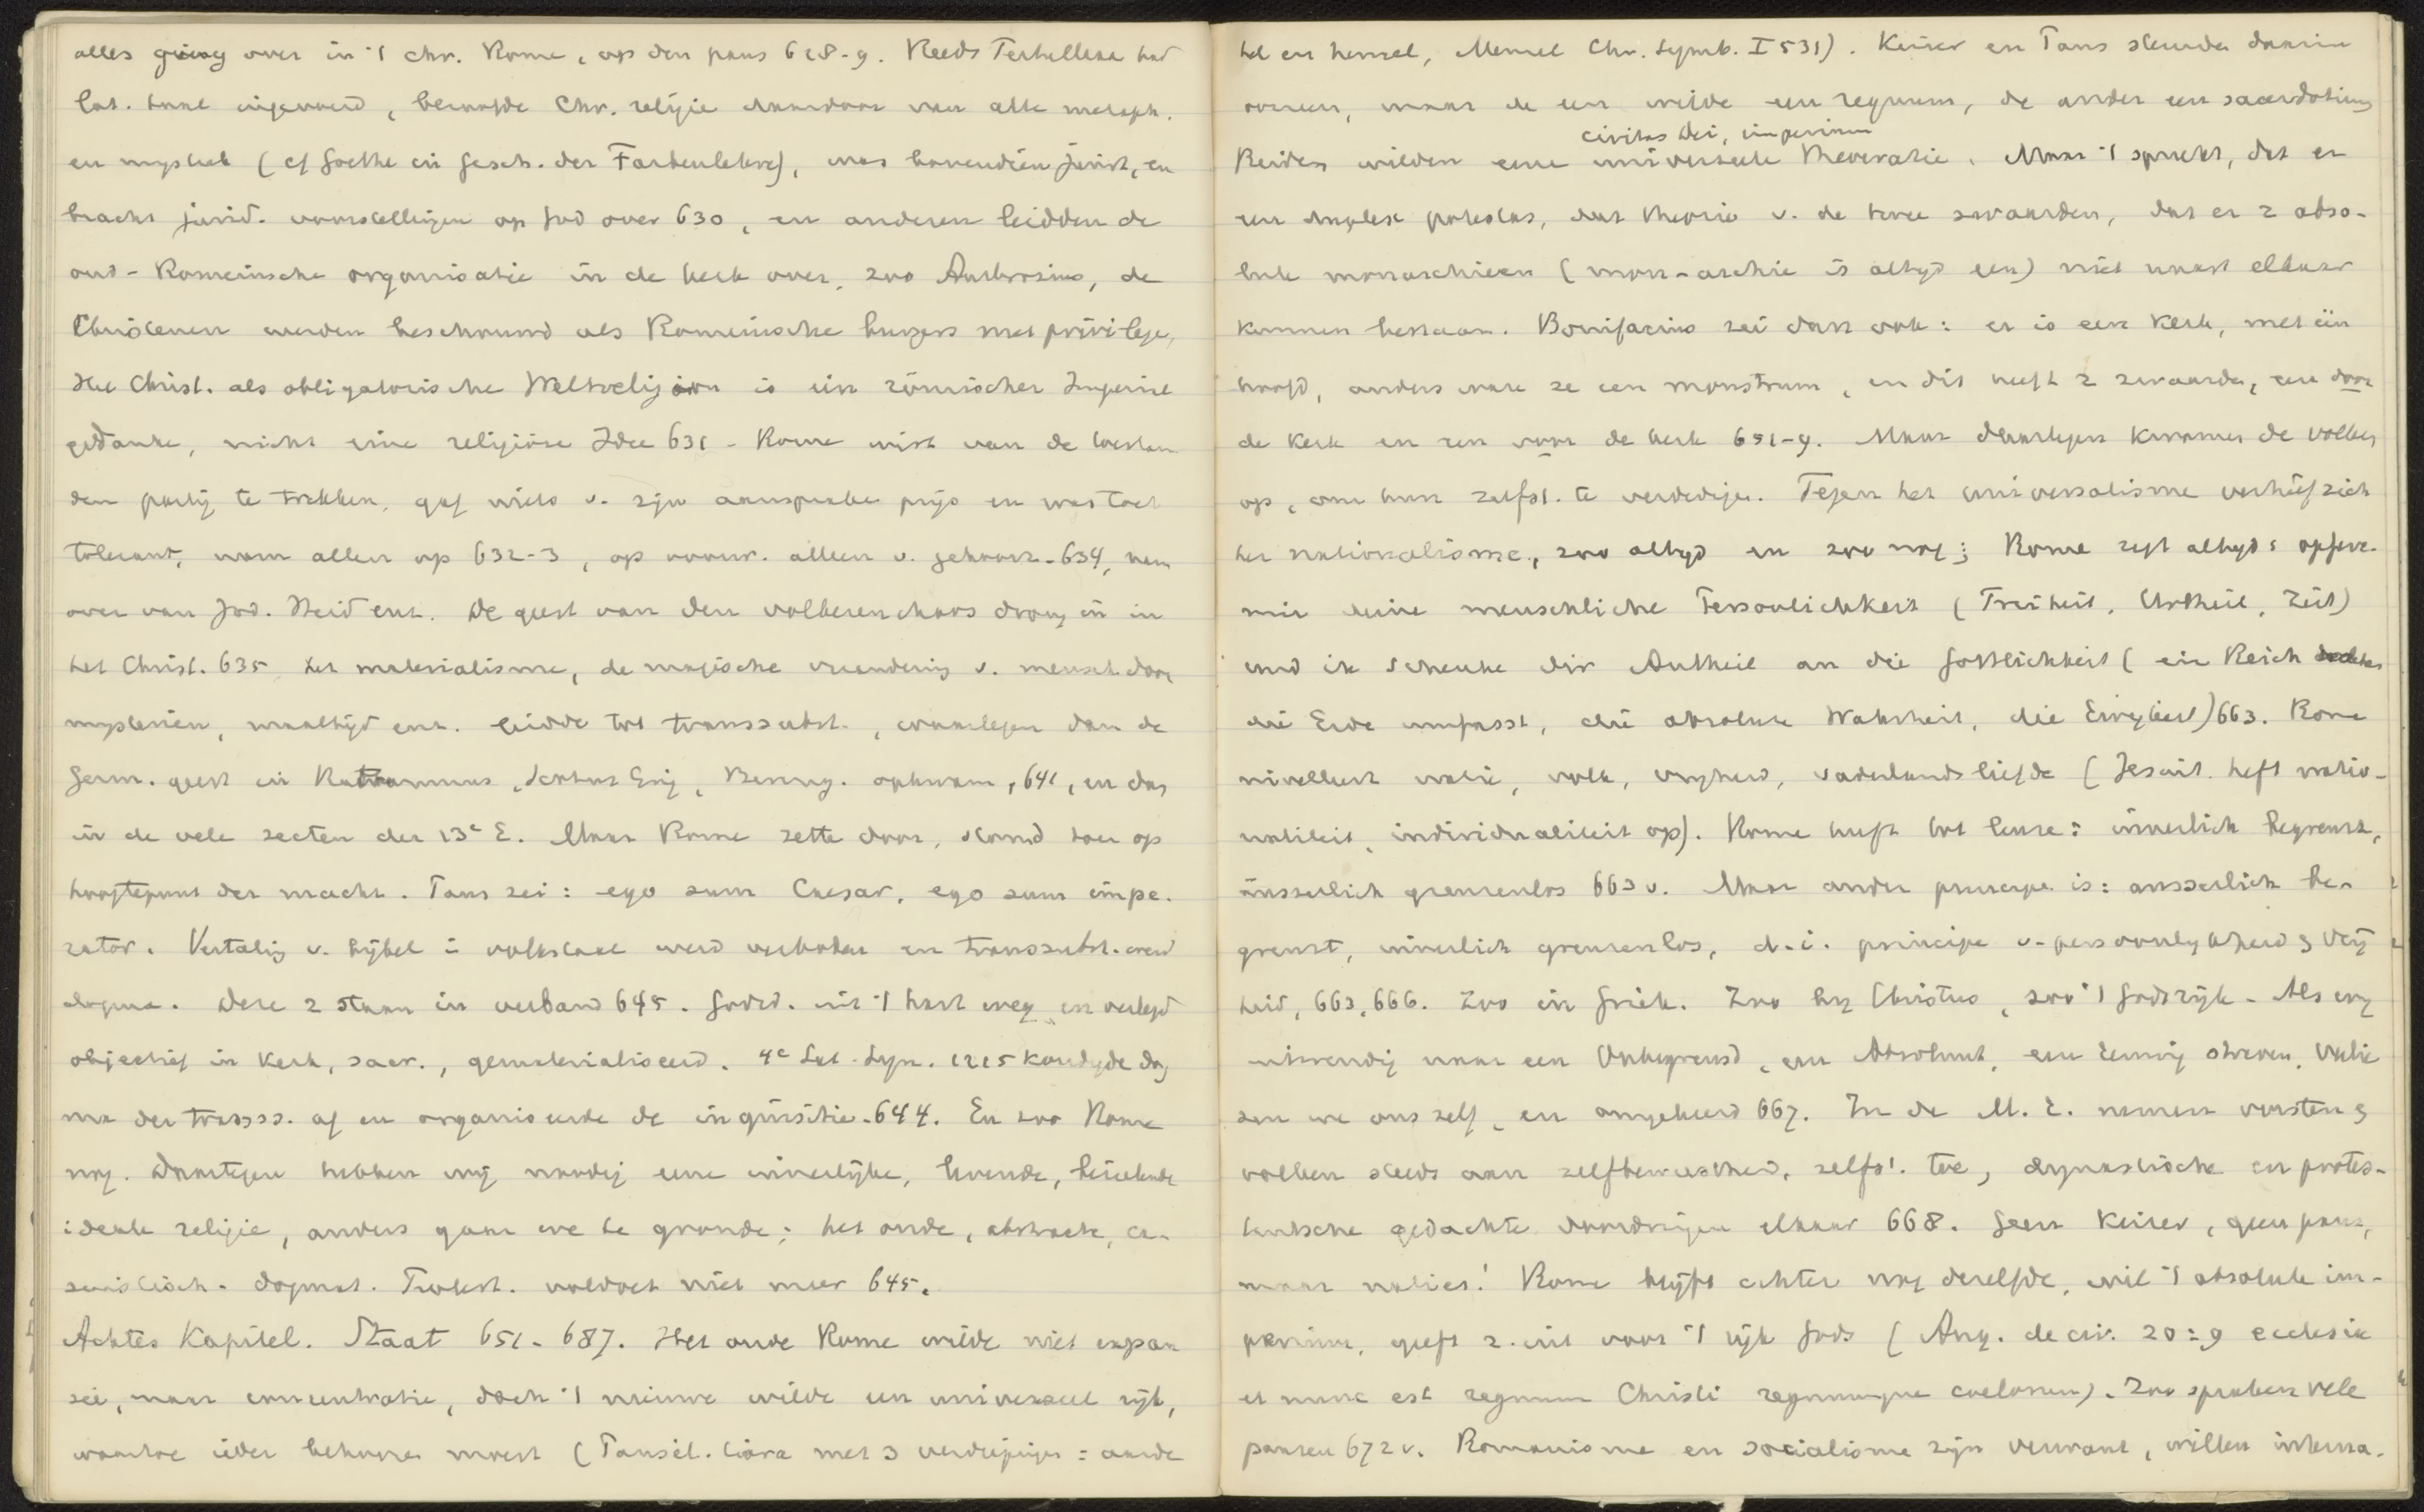 alles ging over in 't chr. Rome, op den paus 628-9. Reeds Tertulliaan had
lat. taal ingevoerd, beroofde Chr. religie daardoor van alle metaph.
en mystiek (cf Goethe in Gesch. der Farbenlehre), was bovendien jurist, en
bracht jurid. voorstellingen op God over 630, en anderen leidden de
oud-Romeinsche organisatie in de kerk over, zoo Ambrosius, de
Christenen werden beschouwd als Romeinsche burgers met privilege,
Het Christ. als obligatorische Weltreligion is ein römischer Imperial
gedanke, nicht eine religiöse Idee 631 - Rome wist van de
den partij te trekken, gaf niets v. zijn aanspraken prijs en was toch
tolerant, nam allen op 632-3, op voorw. alleen v. gehoorz. 634, nam
over van Jod. Heid enz. De geest van den volkerenchaos drong in in
het Christ. 635 het materialisme, de magische verandering v. mensch door
mysteriën, maaltijd enz. leidde tot transsubst., waartegen dan de
Germ. geest in Ratramnus, Scotus Erig, Bereng. opkwam, 641, en dan
in de vele secten der 13e E. Maar Rome zette door, stond toen op
hoogtepunt der macht. Paus zei: ego sum Caesar, ego sum impe-
rator. Vertaling v. bijbel in volkstaal werd verboden en transsubst. werd
dogma. Deze 2 staan in verband 645. Godsd. uit 't hart weg en verlegd
objectief in Kerk, sacr., gematerialiseerd. 4e Lat. Syn. 1215 kondigde dog
ma der transs. af en organiseerde de inquisitie 644. En zoo Rome
nog. Daartegen hebben wij noodig eene innerlijke, levende,
ideale religie, anders gaan we te gronde; het oude, abstracte, ca-
suistisch-dogmat. Protest. voldoet niet meer 645.
Achtes Kapitel. Staat 651-687. Het oude Rome wilde niet expan
sie, maar concentratie, doch 't nieuwe wilde een universeel rijk,
waartoe ieder behooren moest (Pausel. tiara met 3 verdiepingen = aarde
hel en hemel, Menzel Chr. Symb. I 531). Keizer en Paus stemden daarin
overeen, maar de een wilde een regnum, de ander een sacerdotium
civitas Dei, imperium
Beiden wilden eene universeele theocratie. Maar 't spreekt, dat er
een duplex potestas, dat theorie v. de twee zwaarden, dat er 2 abso-
lute monarchieën (mon-archie is altijd een) niet naast elkaar
kunnen bestaan. Bonifacius zei dan ook: er is een Kerk, met één
hoofd, anders ware ze een monstrum, en dit heeft 2 zwaarden, een door
de Kerk en een voor de kerk 651-9. Maar daartegen kwamen de volken
op, om hun zelfst. te verdedigen. Tegen het universalisme verhief zich
het nationalisme, zoo altijd en zoo nog; Rome zegt altijd: opfere
mir deine menschliche Persönlichkeit (Freiheit, Urtheil, Zeit)
und ik schenke dir Antheil an die Göttlichkeit (ein Reich
die Erde umfasst, die absolute Wahrheit, die Ewigkeit) 663. Rome
nivelleert natie, volk, vrijheid, vaderlandsliefde (Jesuit. heft natio-
naliteit, individualiteit op). Rome heeft tot leuze: innerlich begrenzt,
äusserlich grenzenlos 663 v. Maar ander principe is: ausserlich be-
grenzt, innerlich grenzenlos, d.i. principe v. persoonlijkheid & vrij
heid, 663, 666. Zoo in Griek. Zoo bij Christus, zoo 't Godsrijk. Als wij
uitwendig naar een Onbegrensd, een Absoluut, een Eeuwig streven, verlie
zen we ons zelf, en omgekeerd 667. In de M. E. namen vorsten &
volken steeds aan zelfbewustheid, zelfst. toe, dynastische en protes-
tantsche gedachte doordringen elkaar 668. Geen Keizer, geen paus,
maar naties! Rome blijft echter nog dezelfde, wil 't absolute im-
perium, geeft z. uit voor 't rijk Gods (Aug. de civ. 20:9 ecclesia
et nunc est regnum Christi regnumque coelorum). Zoo spraken vele
pausen 672 v. Romanisme en socialisme zijn verwant, willen interna-